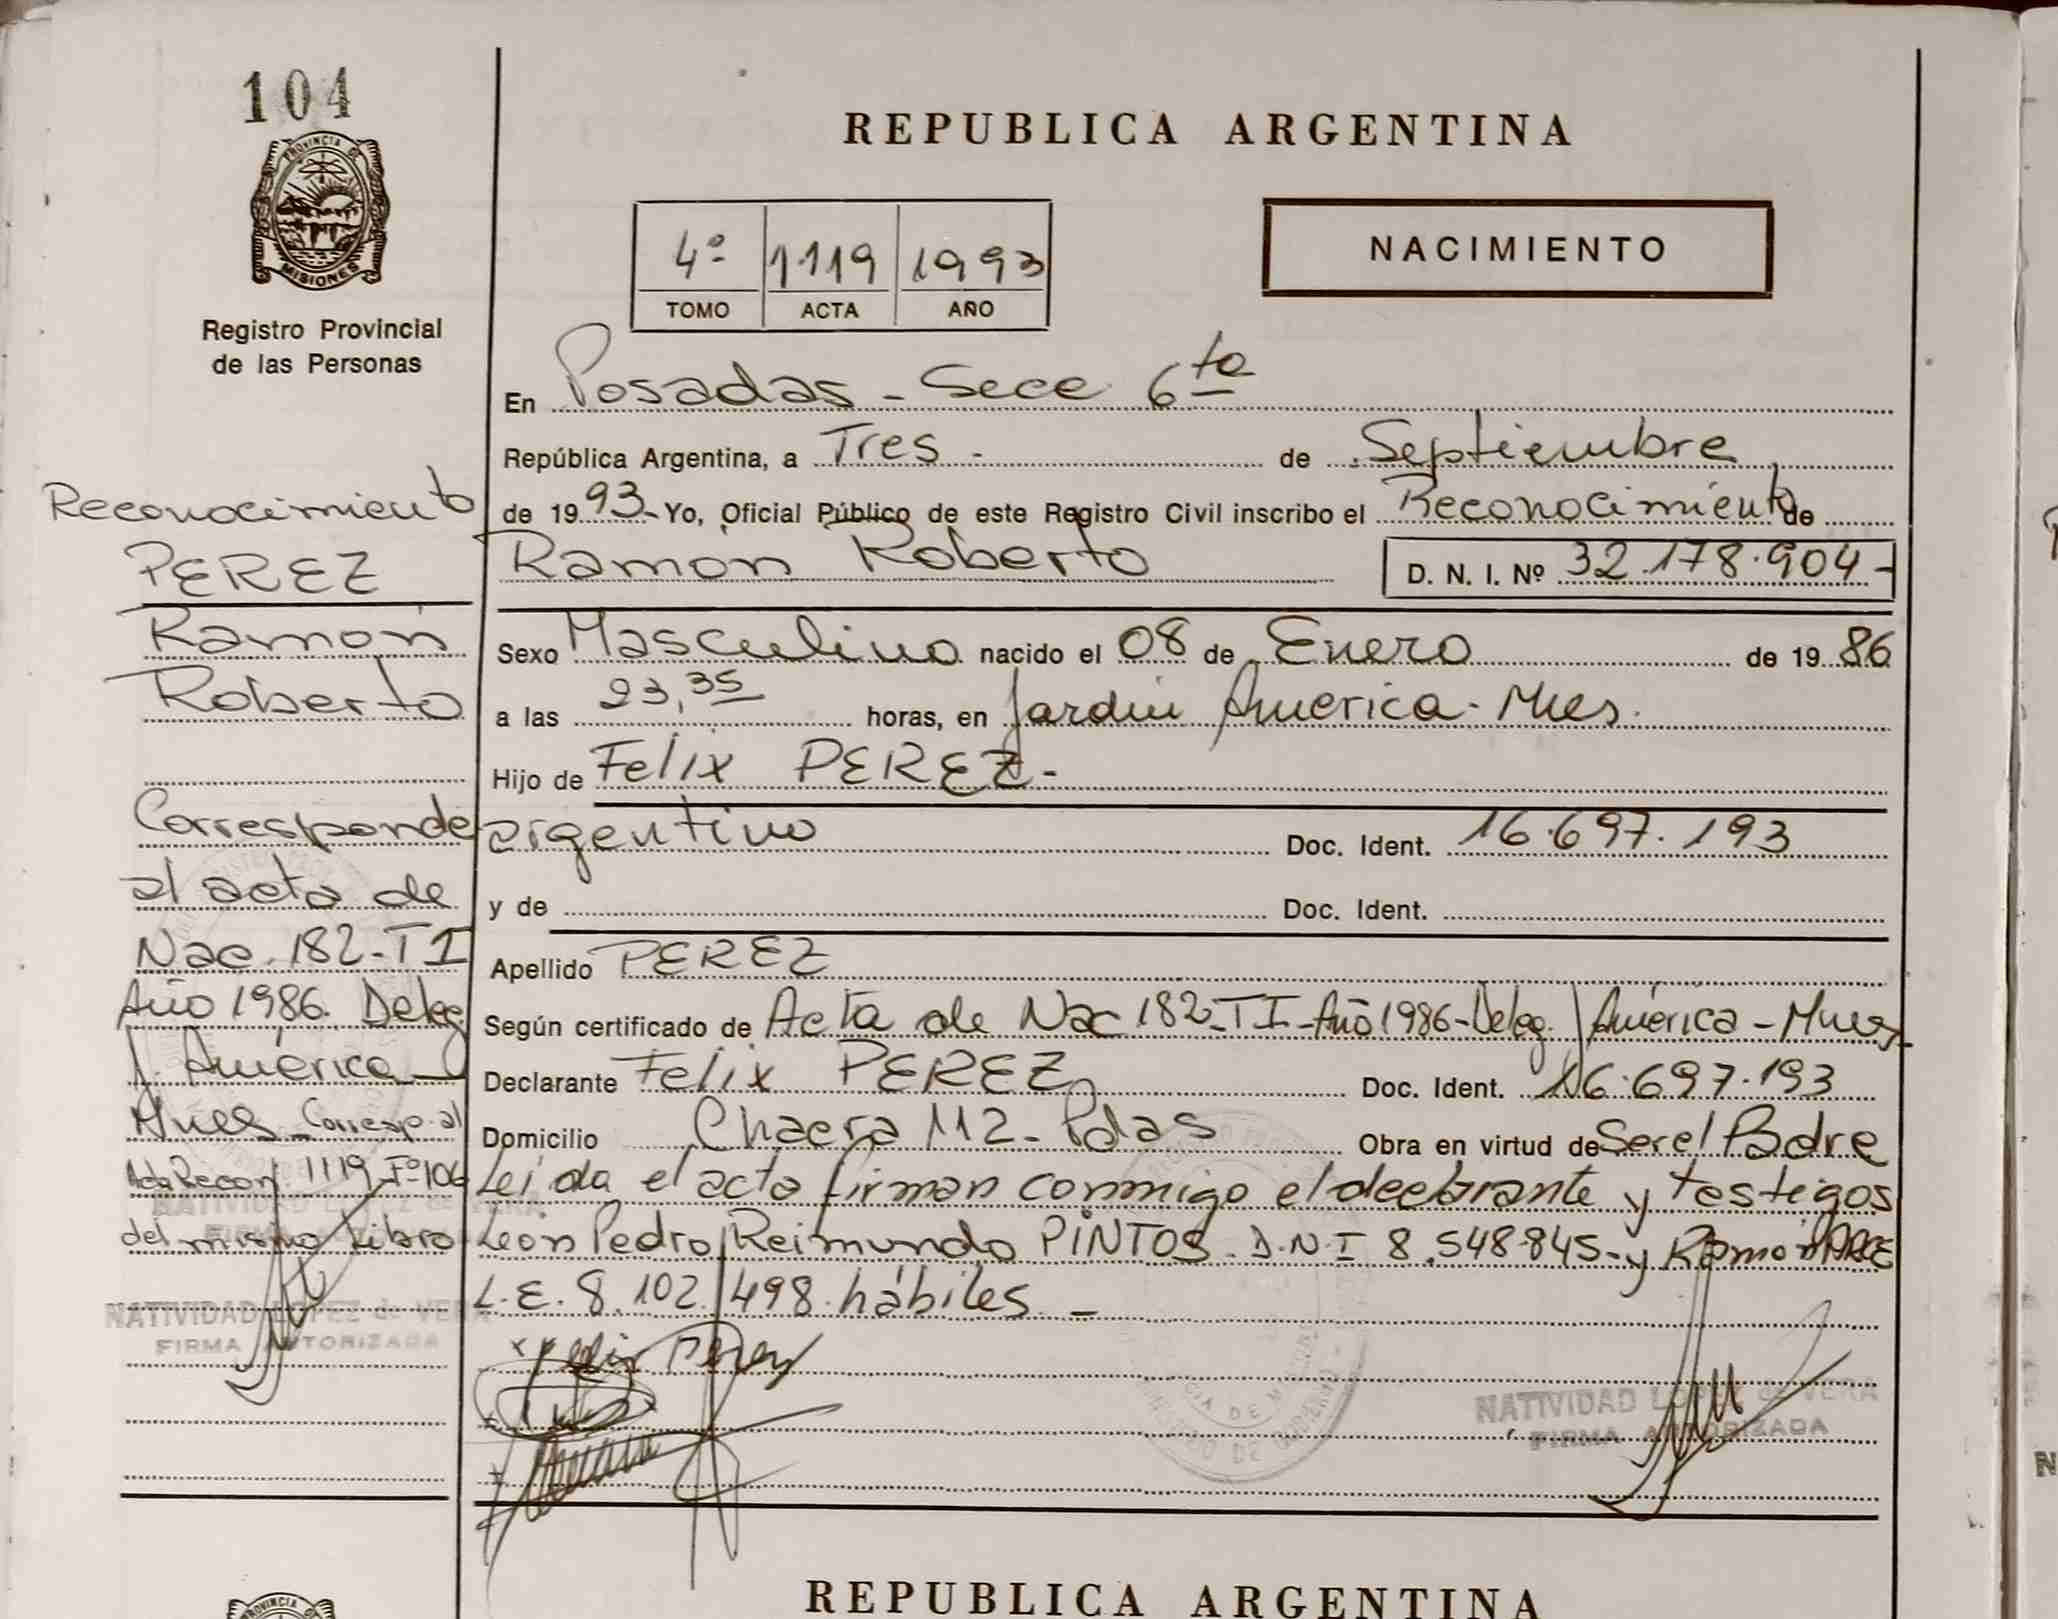 104
PROVINCIA DE
MISIONES
Registro Provincial
de las Personas
Reconocimiento
PEREZ
Ramón
Roberto
Corresponde
al acta de
Nac. 182-TI
Año 1986. Deleg
J. América
Mnes Corresp. al
Acta Recon. 1119 Fº 106
del mismo Libro
NATIVIDAD LOPEZ de VERA
FIRMA AUTORIZADA
NATIVIDAD LOPEZ de VERA
FIRMA AUTORIZADA
REPUBLICA ARGENTINA
4º 1119 1993
TOMO ACTA AÑO
NACIMIENTO
En Posadas - Secc 6ta
República Argentina, a Tres - de Septiembre
de 1993 - Yo, Oficial Público de este Registro Civil inscribo el Reconocimiento de
Ramón Roberto D. N. I. Nº 32.178.904 -
Sexo Masculino nacido el 08 de Enero de 1986
a las 23,35 horas, en Jardín América - Mnes.
Hijo de Felix PEREZ -
argentino Doc. Ident. 16.697.193
y de Doc. Ident.
Apellido PEREZ
Según certificado de Acta de Nac 182-TI-Año 1986-Deleg. J América - Mnes
Declarante Felix PEREZ Doc. Ident. 16.697.193
Domicilio Chacra 112 - Pdas Obra en virtud de Ser el Padre
Leida el acta firman conmigo el declarante y testigos
Leon Pedro Reimundo PINTOS D.N.I 8.548.845 - y Ramón ARCE
L.E. 8.102.498 hábiles -
Felix Perez
NATIVIDAD LOPEZ de VERA
FIRMA AUTORIZADA
REPUBLICA ARGENTINA
PROVINCIA DE